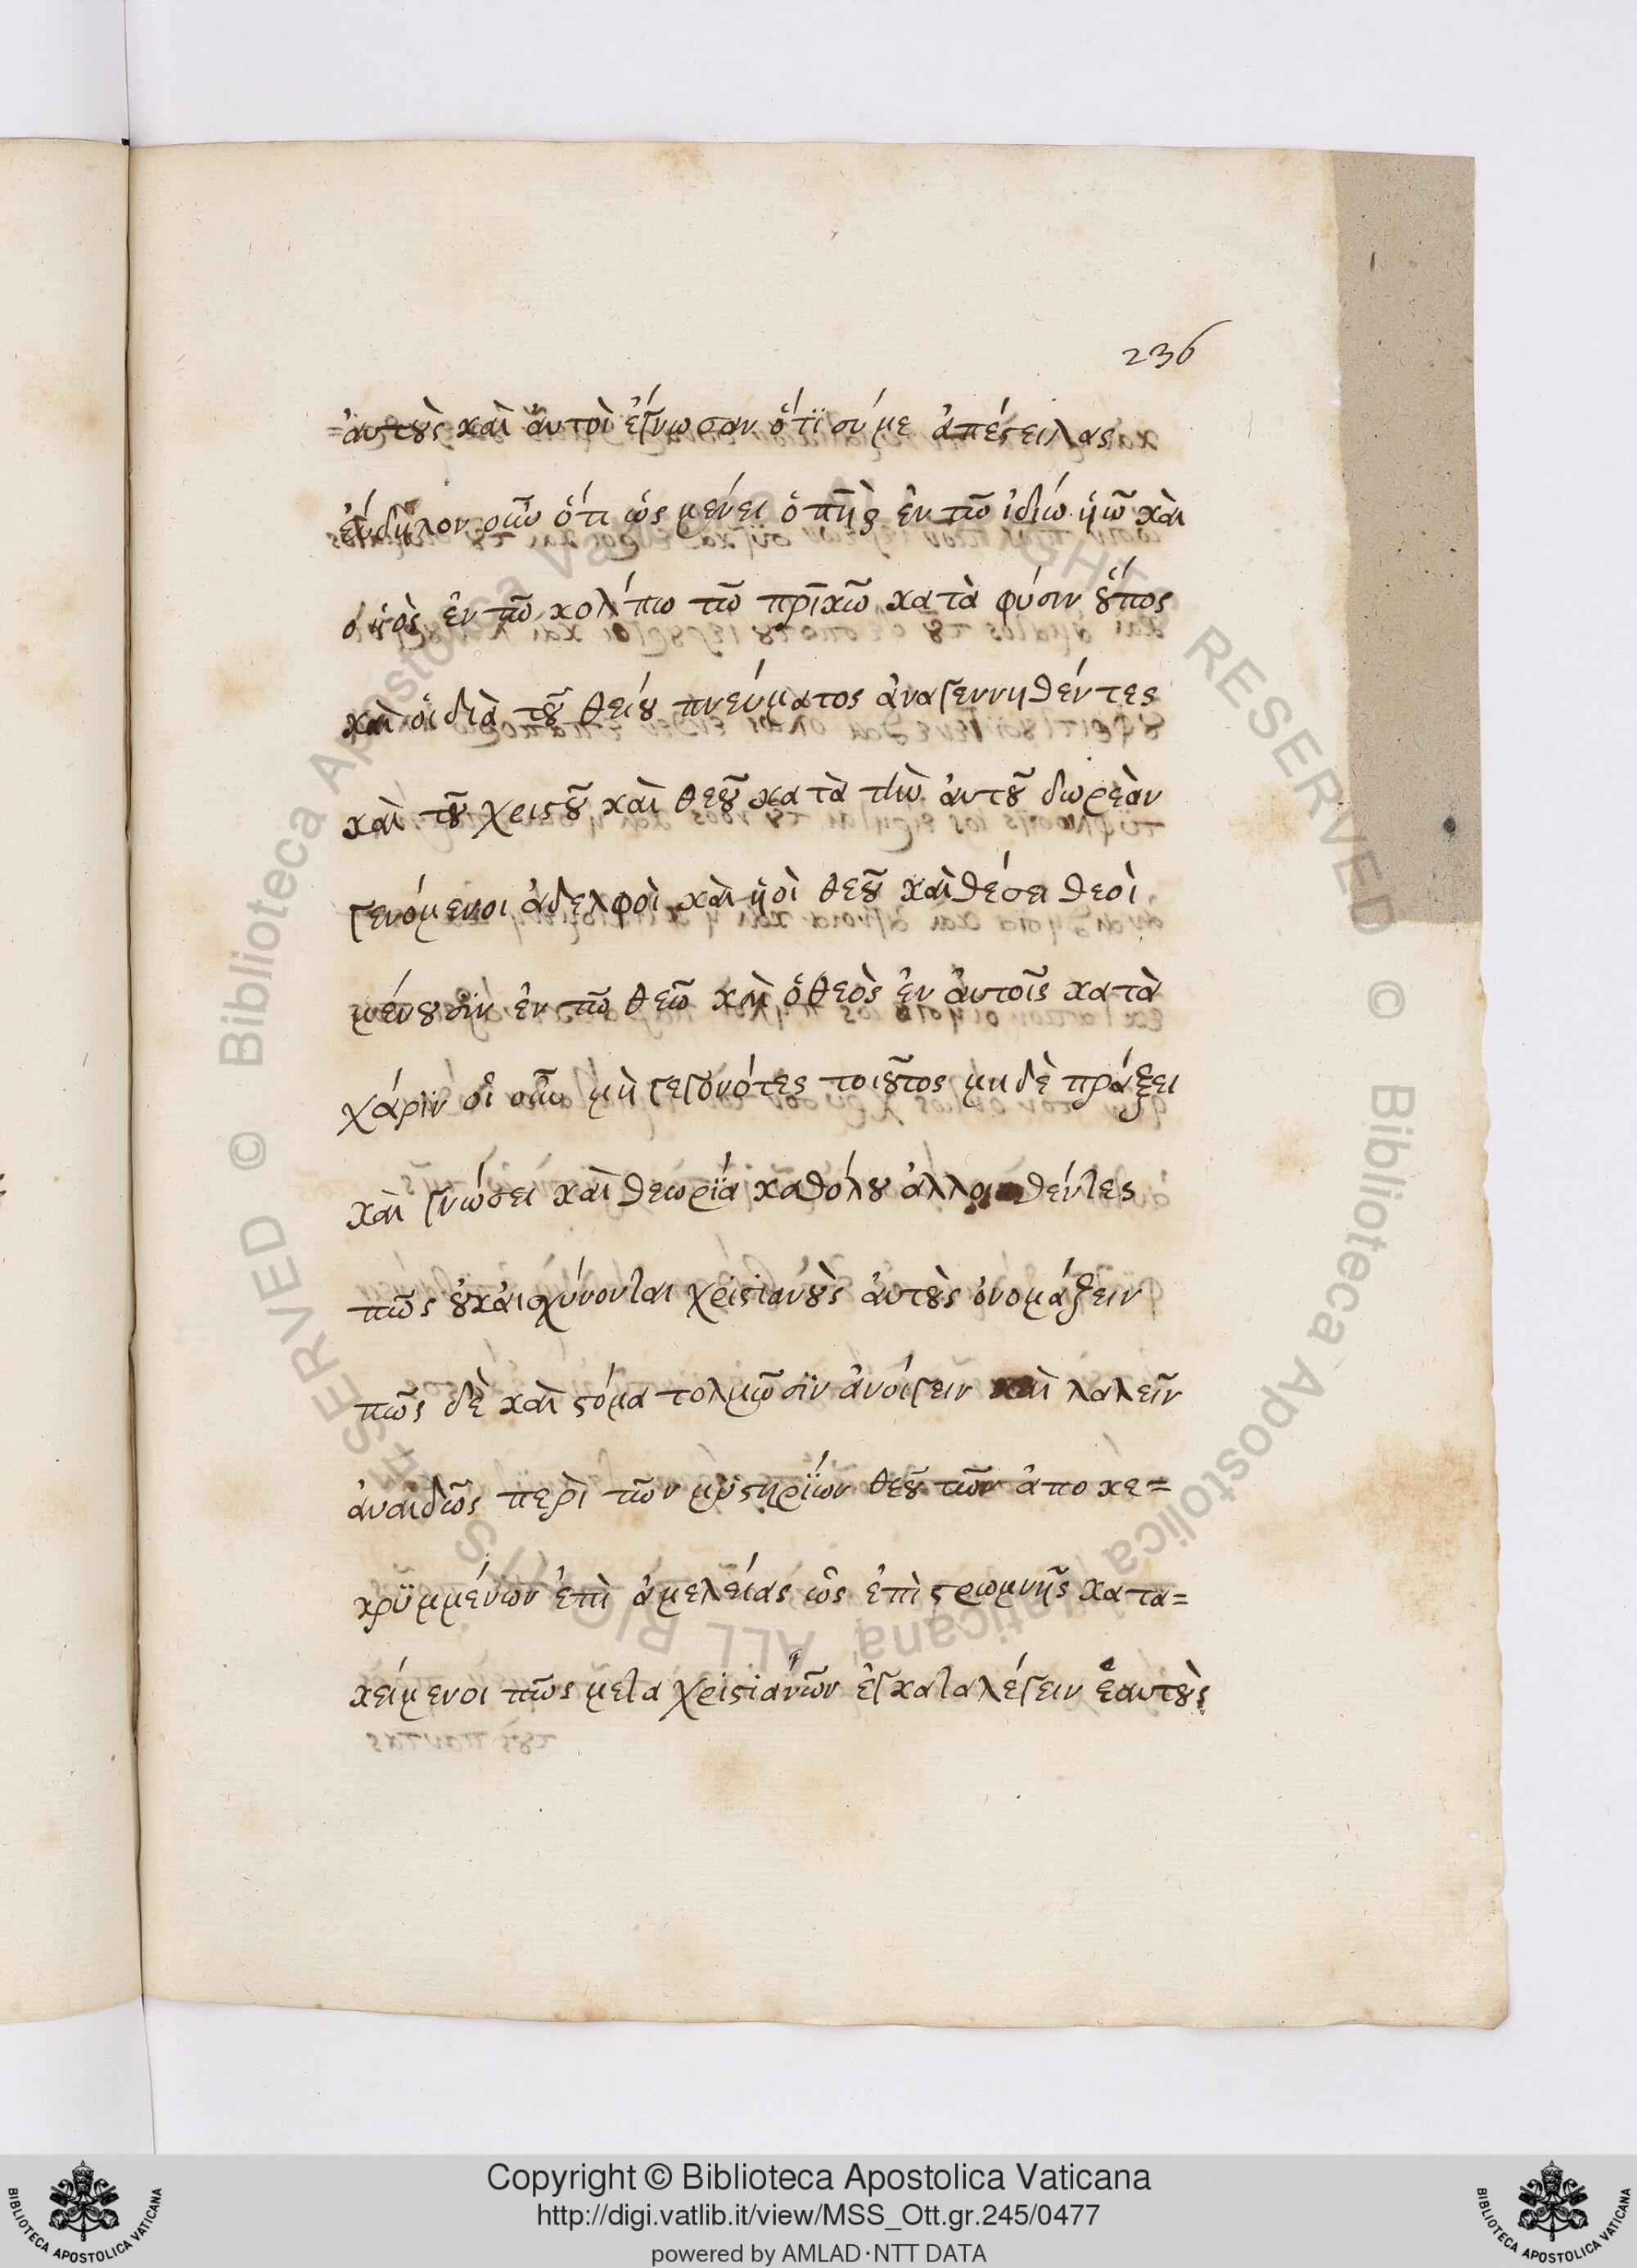 236
=ἀυτοὺς καὶ ἀυτοὶ ἔγνωσαν ὅτϊ σύ με ἀπέστειλας
ἔυδηλον οὖν ὅτι ὡς μένει ὁ π̅η̅ρ ἐν τῶ ἰδίω ὑιῶ καὶ
ὁ ὑιὸς ἐν τῶ κολίπω τῶ π̅ρ̅ικῶ κατὰ φύσιν οὕπος
καὶ ὁι διὰ τοῦ θείου πνεύματος ἀναγεννηθέντες
καὶ τοῦ χριστοῦ καὶ θεοῦ κατὰ τὴν ἀυτοῦ δωρεὰν
γενόμενοι ἀδελφοὶ καὶ ὑιοὶ θεοῦ καὶ θέσει θεοὶ
μένουσϊν ἐν τῶ θεῶ καὶ ὁ θεὸς ἐν ἀυτοῖς κατὰ
χάρϊν ὁι οὖν μὴ γεγονότες τοιοῦτος μηδὲ πράξει
καὶ γνώσει καὶ θεωρΐα καθόλου ἀλλοιωθέντες
πῶς οὐκ ἀισχύνονται χριστιανοὺς ἀυτοὺς ὀνομάζειν
πῶς δὲ καὶ στόμα τολμῶσϊν ἀνοίγειν καὶ λαλεῖν
ἀναιδῶς περὶ τῶν μυστηρΐων θεοῦ τῶν ἀπο κε=
κρϋμμένων ἐπὶ ἀμελείας ὡς ἐπὶ στρωμνῆς κατα=
κείμενοι πῶς μετα χριστιανῶν ἐγκαταλέγειν ἑαυτοὺς
Copyright © Biblioteca Apostolica Vaticana
http://digi.vatlib.it/view/MSS_Ott.gr.245/0477
powered by AMLAD·NTT DATA
BIBLIOTECA APOSTOLICA VATICANA
BIBLIOTECA APOSTOLICA VATICANA
© Biblioteca Apostolica Vaticana ALL RIGHTS RESERVED © Biblioteca Apostolica Vaticana ALL RIGHTS RESERVED